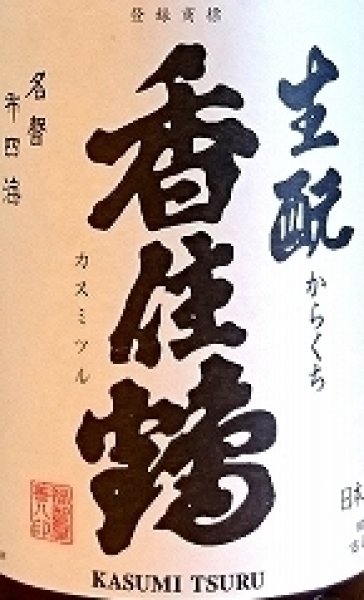 登録商標
生酛
からくち
香住鶴
カスミツル
名聲
布四海
日本
KASUMI TSURU